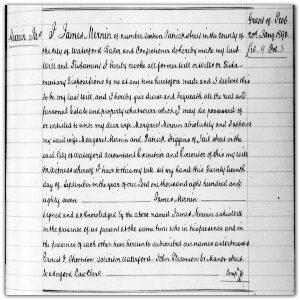 Grant of Prob.
20th Jany 1898
Mernin Jas
I James Mernin of number sixteen Patrick street in the county of
the City of Waterford Baker and Confectioner do hereby make my last
Will and Testament I hereby revoke all former wills or wills or Testa
mentary dispositions by me at any time heretofore made and I declare this
to be my last will, and I hereby give devise and bequeath all the real and
personal Estate and property whatsoever which I may die possessed of
or entitled to unto my dear wife Margaret Mernin absolutely and I appoint
my said wife Margaret Mernin and Patrick Higgins of said street in the
said City of Waterford accountant Executrix and Executor of this my will
In witness whereof I have hereto my will set my hand this Twenty seventh
day of September in the year of our Lord one thousand eight hundred and
eighty seven James Mernin
signed and acknowledged by the above named James Mernin as his will
in the presence of us present at the same time who in his presence and in
the presence of each other have hereunto subscribed our names as witnesses
Ernest I. Thornton solicitor Waterford John Manor street
Waterford Law Clerk